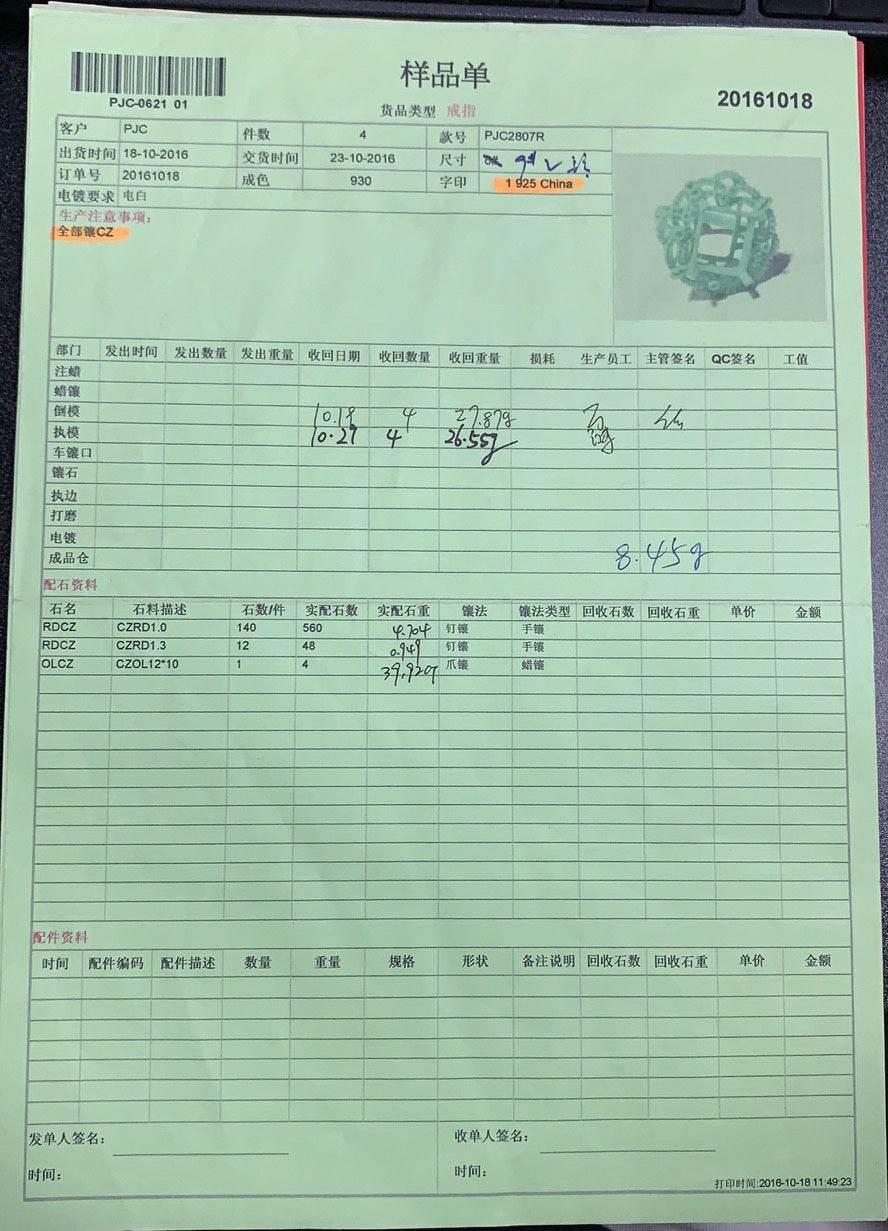 样品单
PJC-0621 01
货品类型 戒指
20161018
客户 PJC 件数 4 款号 PJC2807R
出货时间 18-10-2016 交货时间 23-10-2016 尺寸
订单号 20161018 成色 930 字印 1 925 China
电镀要求 电白
生产注意事项:
全部镶CZ
部门 发出时间 发出数量 发出重量 收回日期 收回数量 收回重量 损耗 生产员工 主管签名 QC签名 工值
注蜡
蜡镶
倒模 10.18 4 27.87g
执模 10.27 4 26.55g
车镶口
镶石
执边
打磨
电镀
成品仓 8.45g
配石资料
石名 石料描述 石数/件 实配石数 实配石重 镶法 镶法类型 回收石数 回收石重 单价 金额
RDCZ CZRD1.0 140 560 4.704 钉镶 手镶
RDCZ CZRD1.3 12 48 0.949 钉镶 手镶
OLCZ CZOL12*10 1 4 39.920g 爪镶 蜡镶
配件资料
时间 配件编码 配件描述 数量 重量 规格 形状 备注说明 回收石数 回收石重 单价 金额
发单人签名: 收单人签名:
时间: 时间:
打印时间:2016-10-18 11:49:23